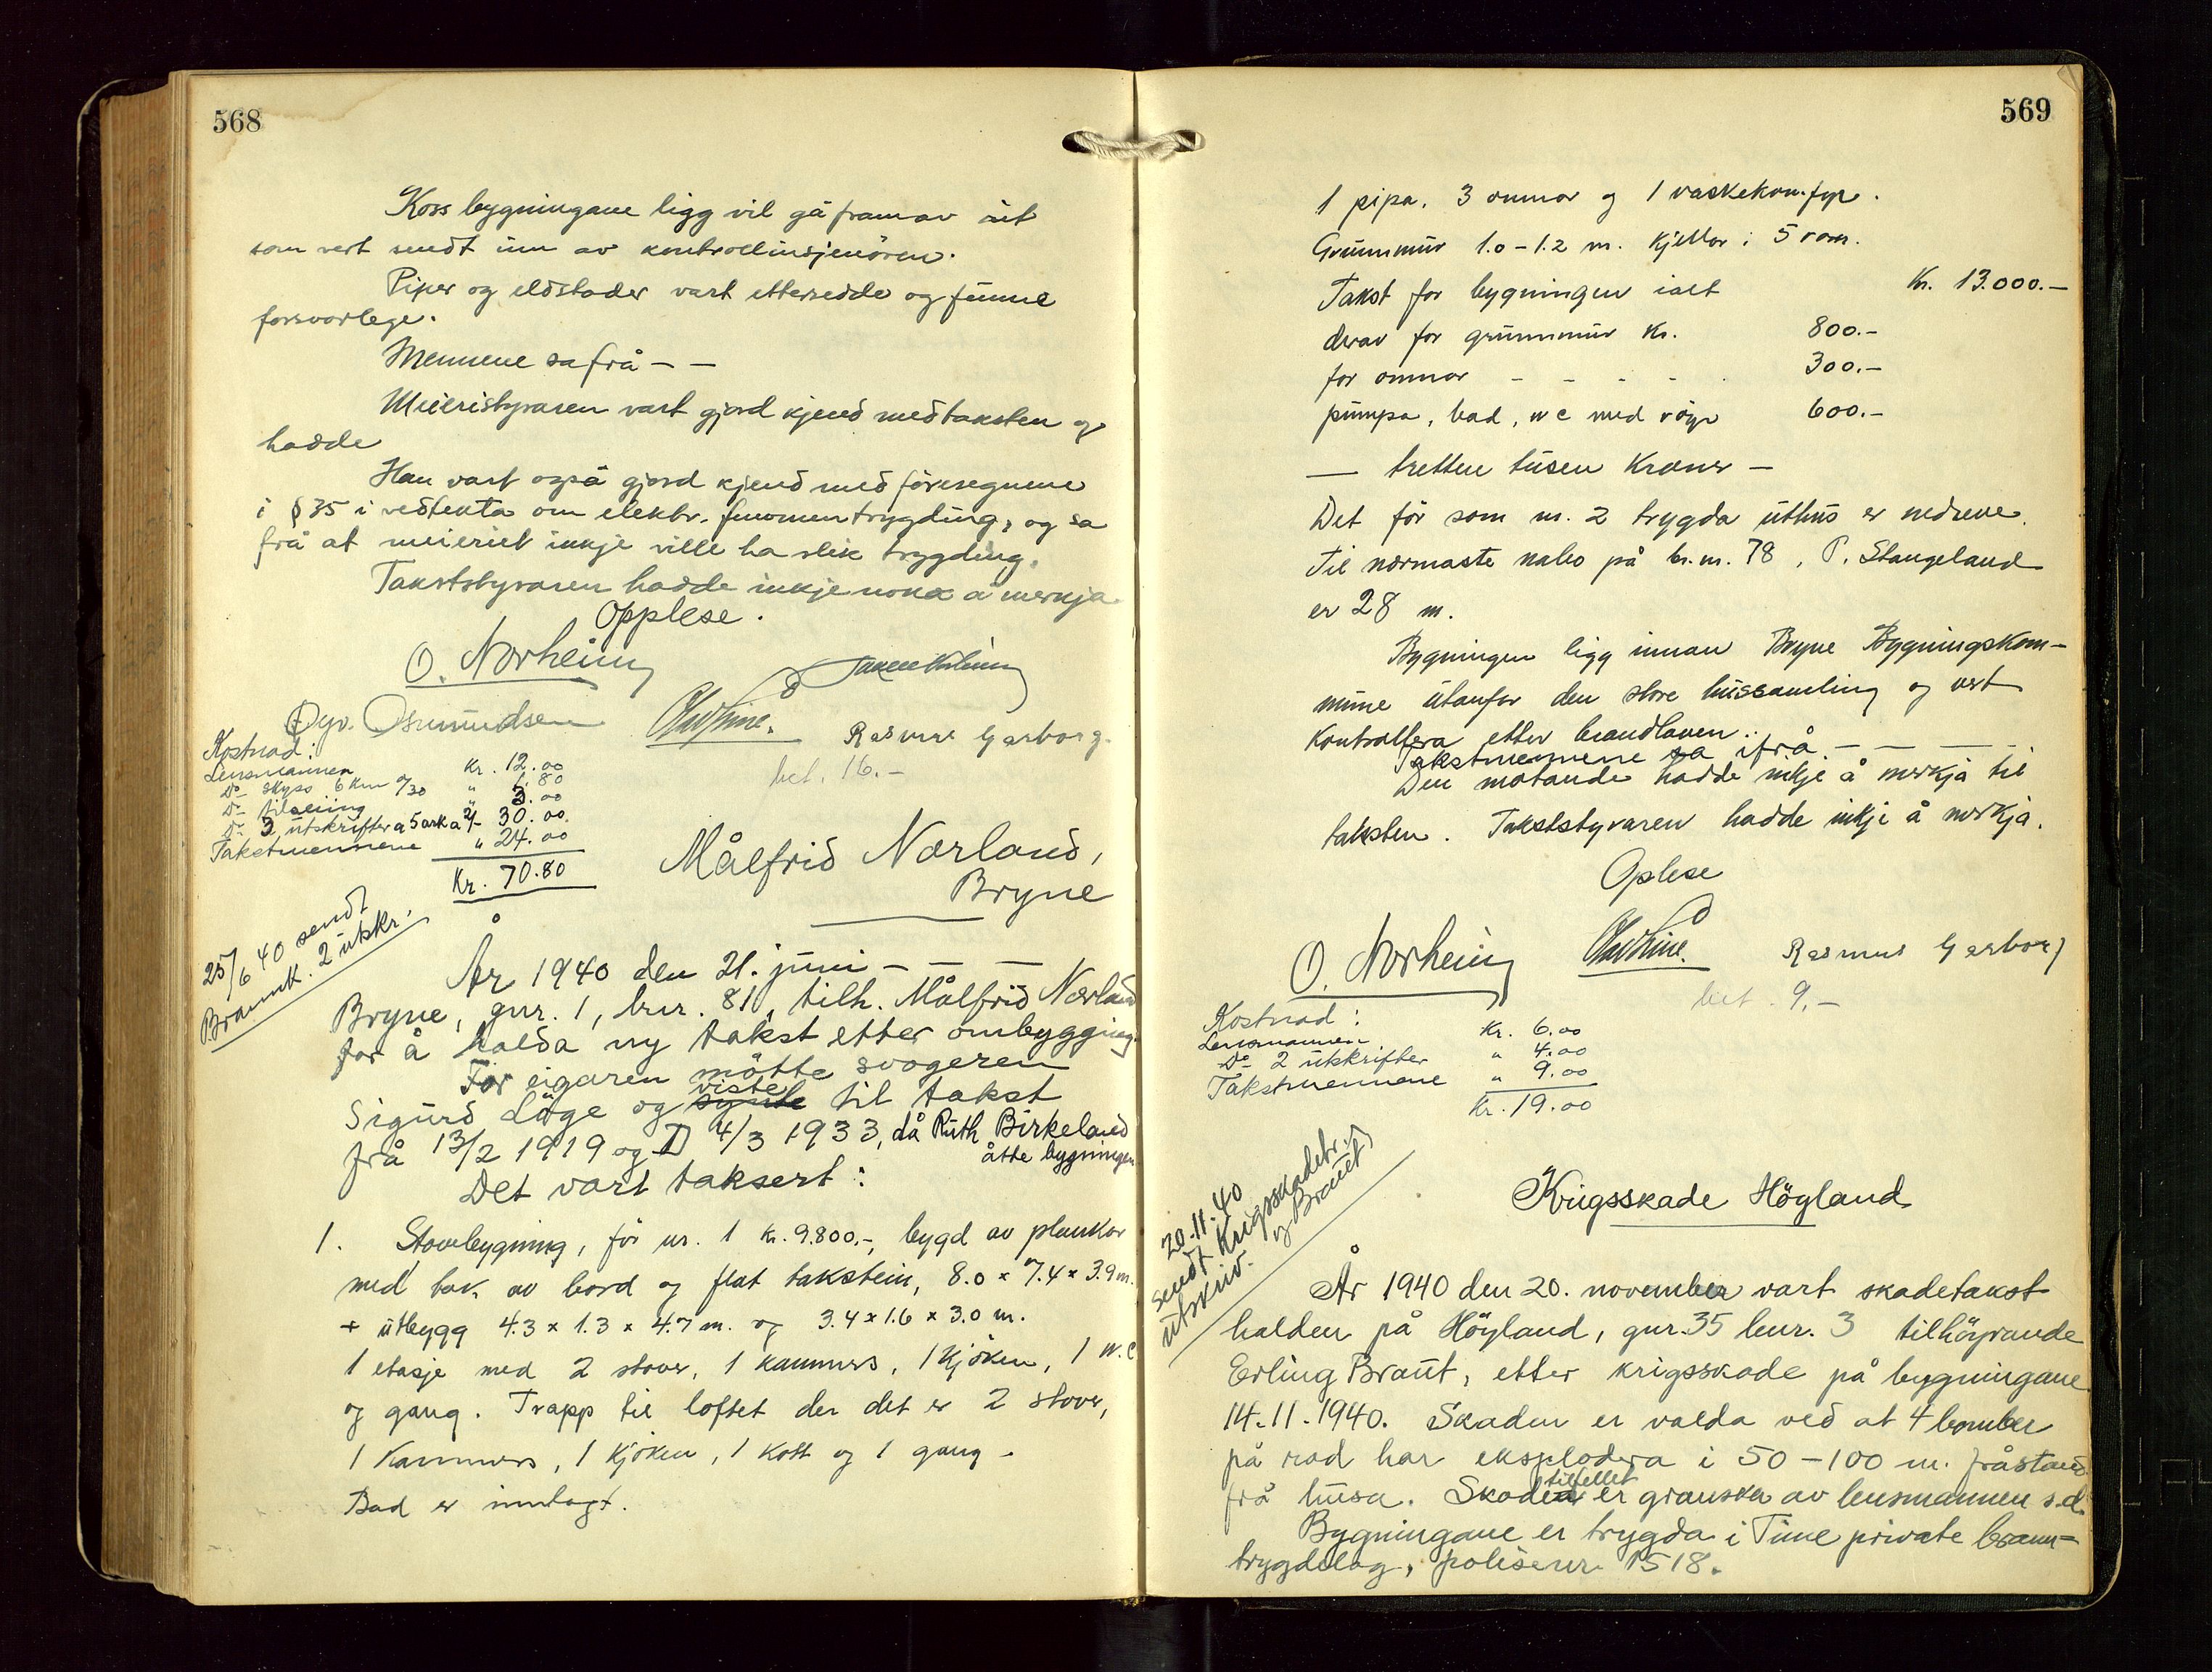 568
Koss bygningane ligg vil gå fram av
som vert sendt inn av kontrollinsjenören.
Piper og eldstader vart ettersedde og funne
forsvarlege.
Mennene sa frå — —
Meieristyraren vart gjord kjend med taksten og
hadde
Han vart også gjord kjend med föresegnene
i § 35 i vedtekta om elektr. fenomentrygding, og sa
frå at meieriet inkje ville ha slik trygding.
Takststyraren hadde inkje noko å merkja.
Opplese.
O. Norheim
Öyv. Osmundsen
Rasmus Garborg.
bet. 16.-
Kostnad:
Lensmannen Kr. 12.00
Do skyss 6 km a/30 " 1.80
Do tilseiing " 3.00
Do 3 utskrifter a 5 ark a 2/- 30.00
Takstmennene " 24.00
Kr. 70.80
Målfrid Nærland,
Bryne
25/6 40 sendt
Brannk. 2 utskr.
År 1940 den 21. juni — — —
Bryne, gnr. 1, bnr. 81, tilh. Målfrid Nærland
for å halda ny takst etter ombygging.
For eigaren mötte svogeren
viste
Sigurd Löge og synte til takst
frå 13/2 1919 og D 4/3 1933, då Ruth Birkeland
åtte bygningen
Det vart taksert:
1. Stovebygning, för nr. 1 kr. 9.800.-, bygd av plankar
med tak av bord og flat takstein, 8.0 x 7.4 x 3.9 m.
+ utbygg 4.3 x 1.3 x 4.7 m. og 3.4 x 1.6 x 3.0 m.
1 etasje med 2 stover, 1 kammers, 1 kjöken, 1 w.c
og gang. Trapp til loftet der det er 2 stover,
1 kammers, 1 kjöken, 1 kott og 1 gang.
Bad er innlagt.
569
1 pipa, 3 omnar og 1 vaskekom.fyr.
Grunnmur 1.0 – 1.2 m. Kjellar i 5 rom.
Takst for bygningen ialt Kr. 13.000.—
derav for grunnmur Kr. 800.-
for omnar - - - - 300.-
pumpa, bad, wc med röyr 600.-
— tretten tusen kroner —
Det för som nr. 2 trygda uthus er nedreve.
Til nærmaste nabo på br.nr. 78, P. Stangeland
er 28 m.
Bygningen ligg innan Bryne Bygningskom-
mune utanfor den store hussamling og vert
kontrollera etter brandloven.
Takstmennene sa ifrå — — —
Den møtande hadde inkje å merkja til
taksten. Takststyraren hadde inkje å merkja.
Oplese
O. Norheim
Rasmus Garborg
bet. 9,-
Kostnad:
Lensmannen Kr. 6.00
Do 2 utskrifter " 4.00
Takstmennene " 9.00
Kr. 19.00
Krigsskade Höyland
20.11.40
sendt Krigsskadetr.
utskriv. og Braut
År 1940 den 20. november vart skadetakst
halden på Höyland, gnr. 35 bnr. 3 tilhöyrande
Erling Braut, etter krigsskade på bygningane
14.11.1940. Skaden er valda ved at 4 bomber
på rad har eksplodera i 50 – 100 m. fråstand
tilfellet
frå husa. Skaden er granska av lensmannen s.d.
Bygningane er trygda i Time private brann-
trygdelag, polisenr 1518.